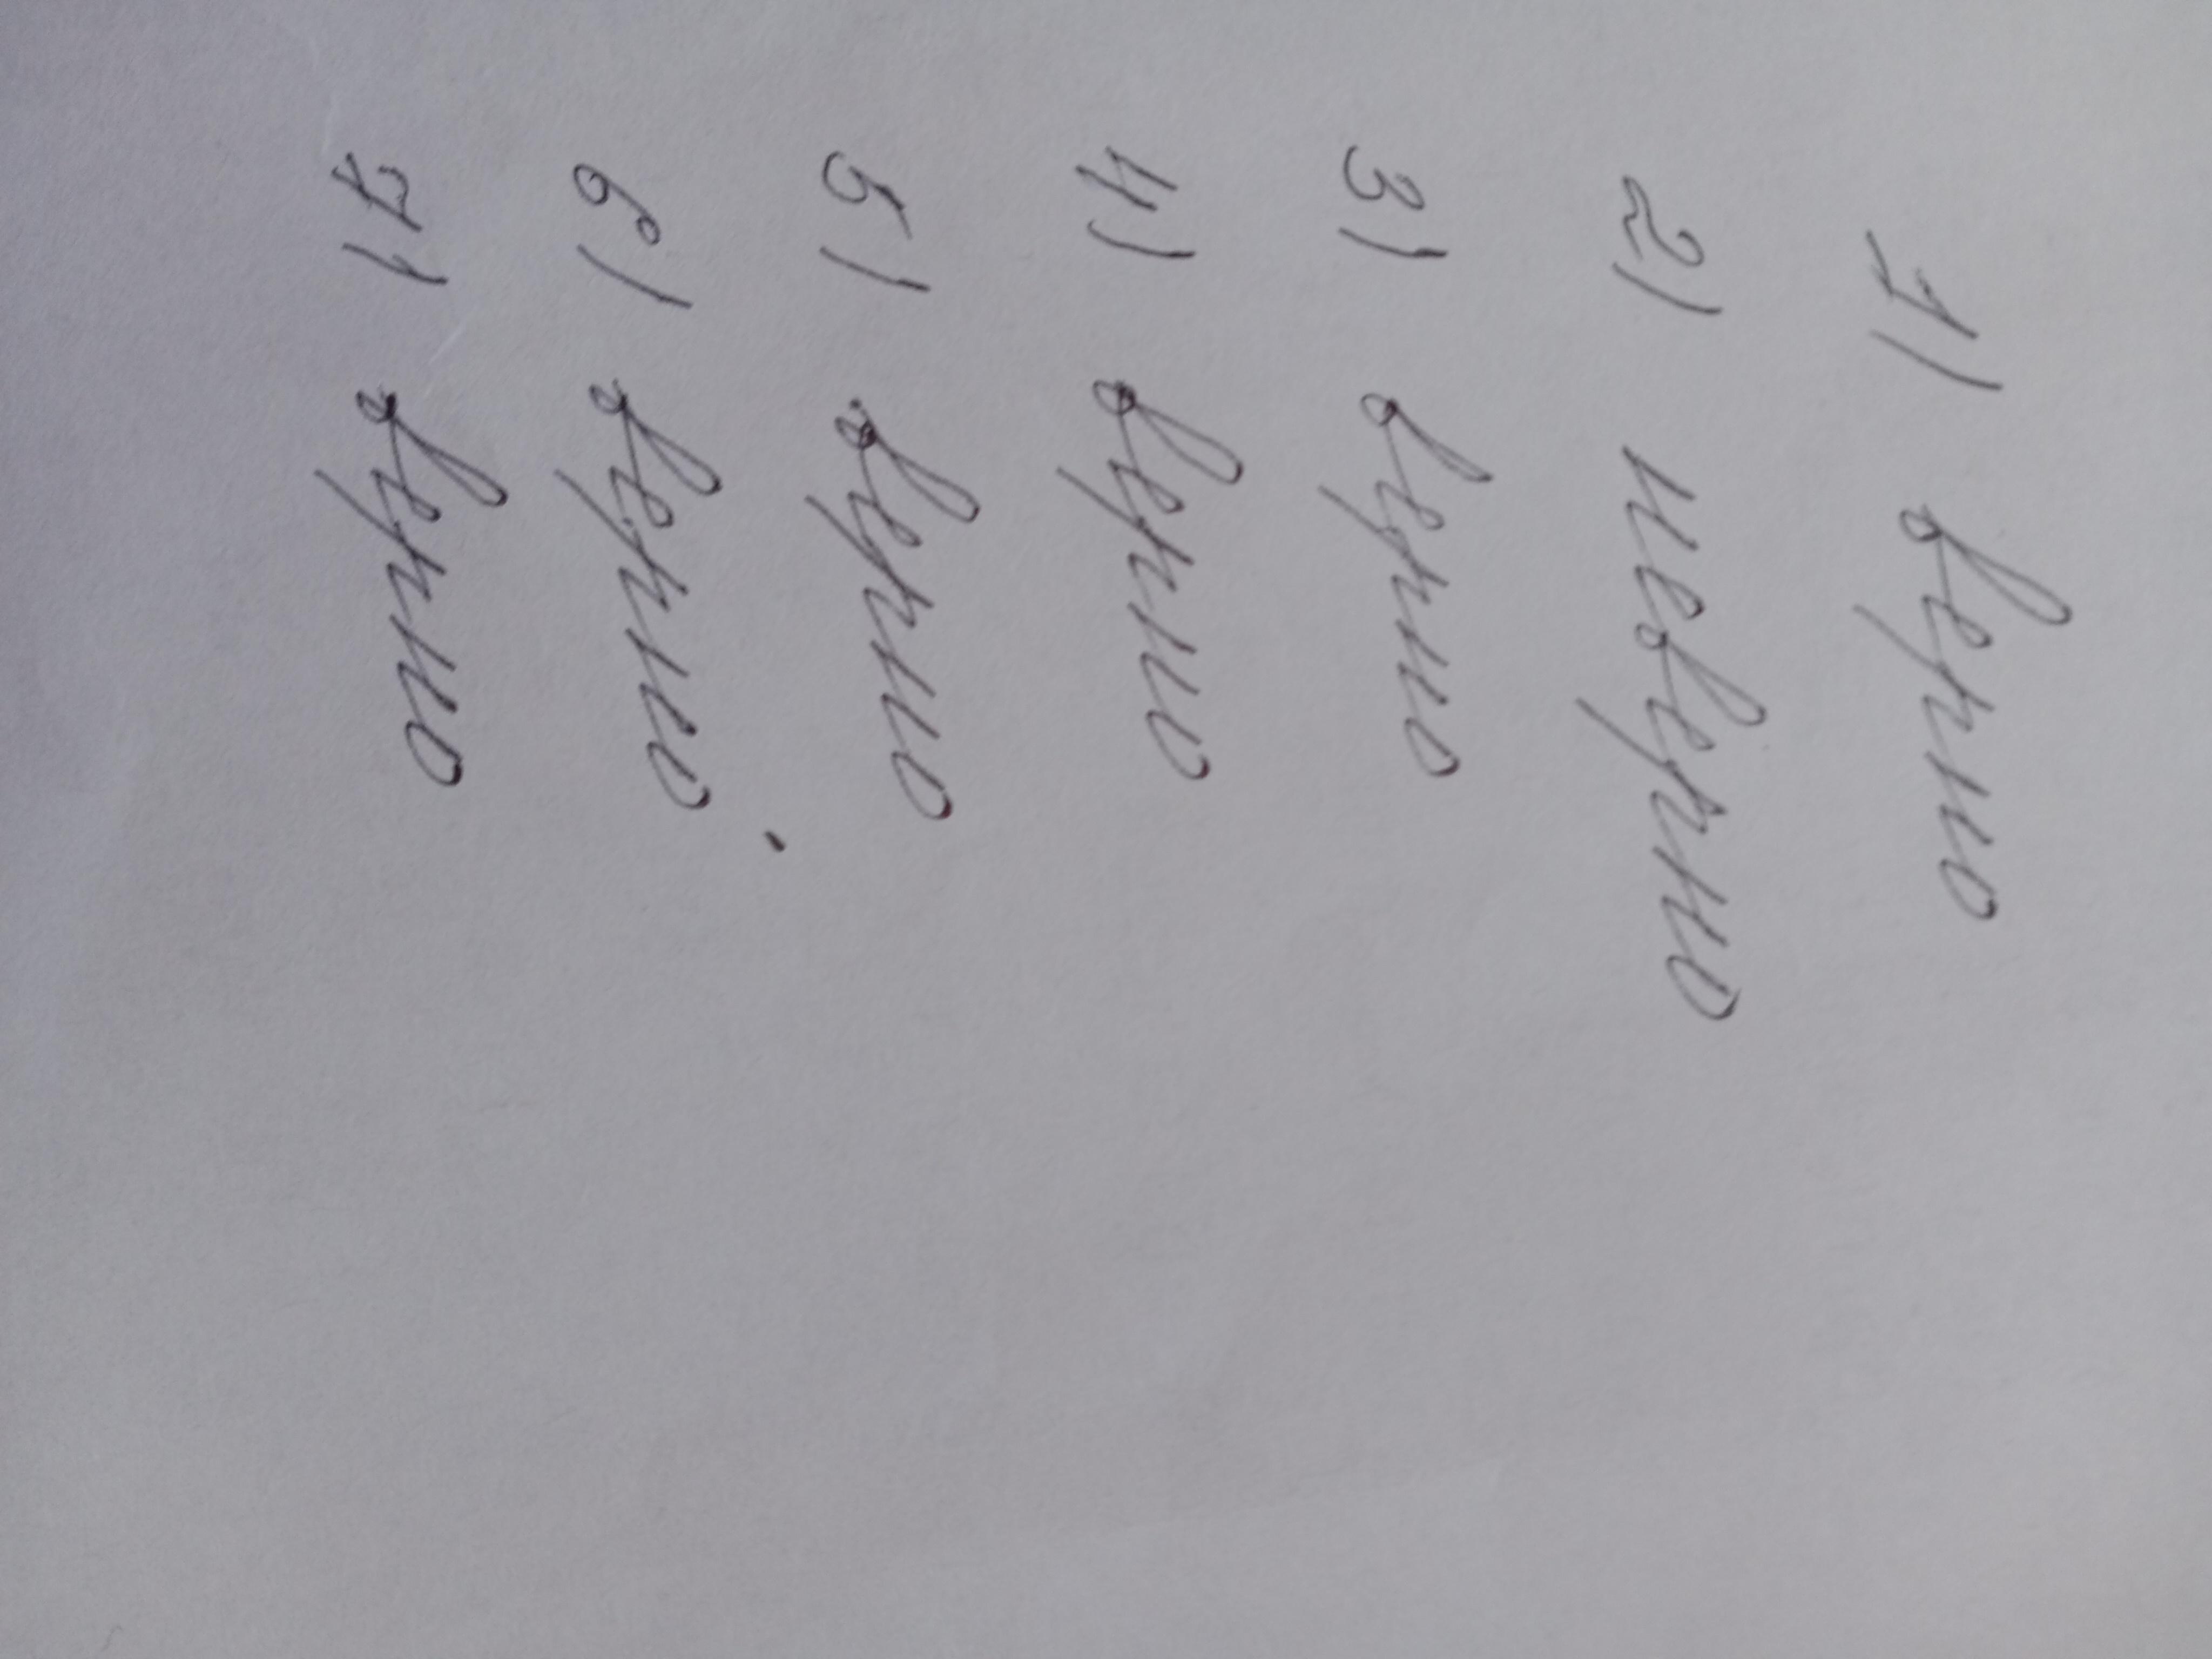 1) верно
2) неверно
3) верно
4) верно
5) верно
6) верно
7) верно